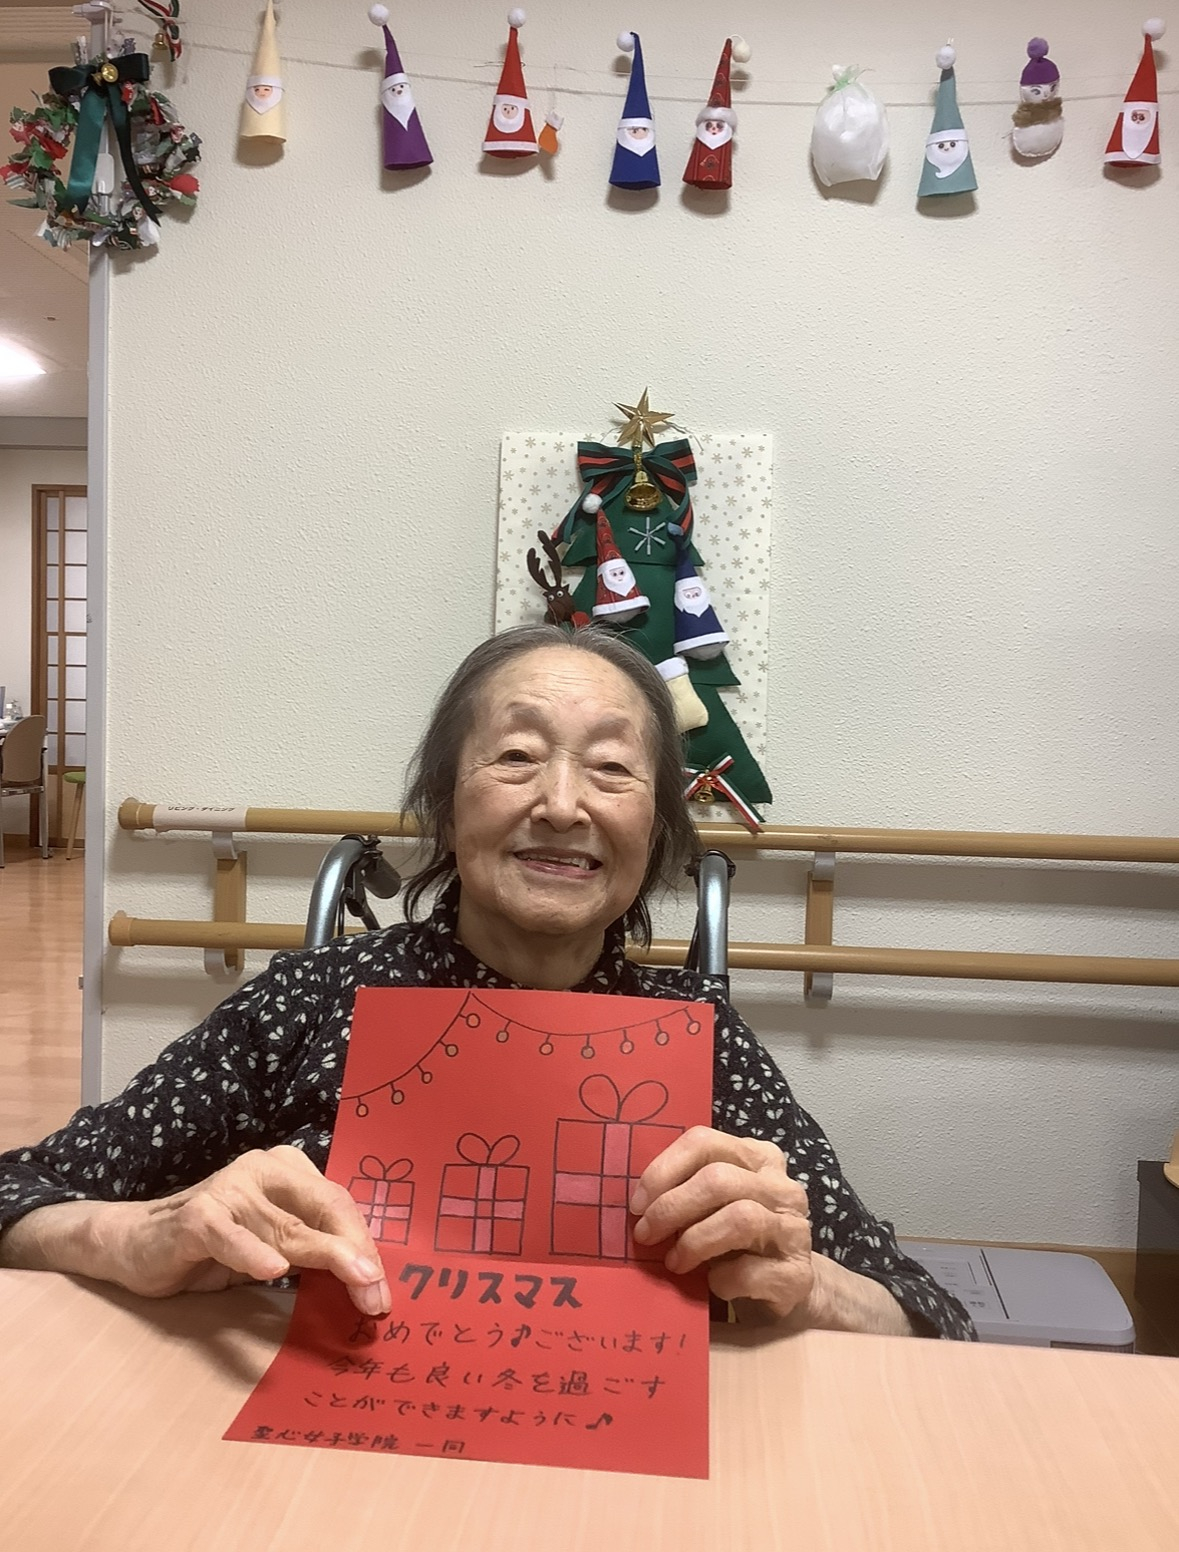 リビング・ダイニング
クリスマス
おめでとう♪ございます!
今年も良い冬を過ごす
ことができますように♪
聖心女子学院 一同